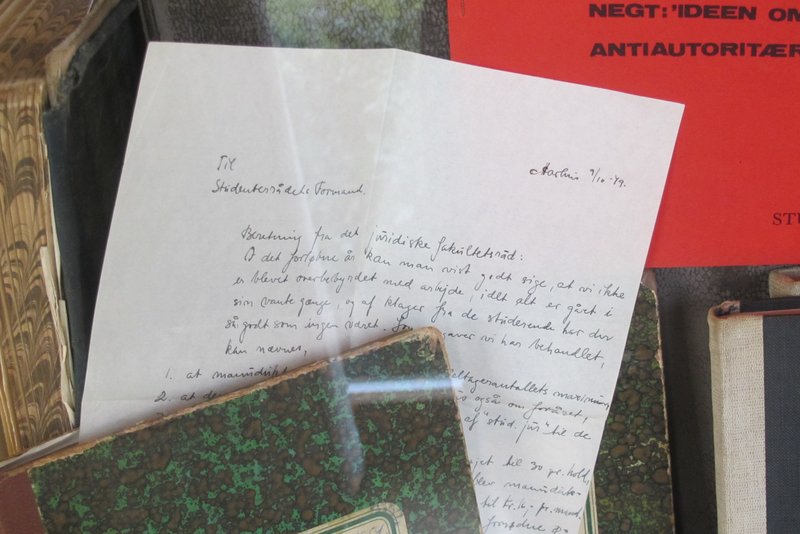 NEGT: 'IDEEN OM
ANTIAUTORITÆR
ST
Til
Studenterrådets Formand.
Aarhus 7/10-49.
Beretning fra det juridiske fakultetsråd:
I det forløbne år kan man vist godt sige, at vi ikke
er blevet overbebyrdet med arbejde, idet alt er gået i
sin vante gange, og af klager fra de studerende har der
så godt som ingen været. Som gaver vi har behandlet,
kan nævnes,
1. at manudukt
eltagerantallets maximum,
2. at de
også om foråret,
af "stud. jur" til de
jet til 30 pr. hold,
blev manuduk-
til kr. 4,- pr. md.